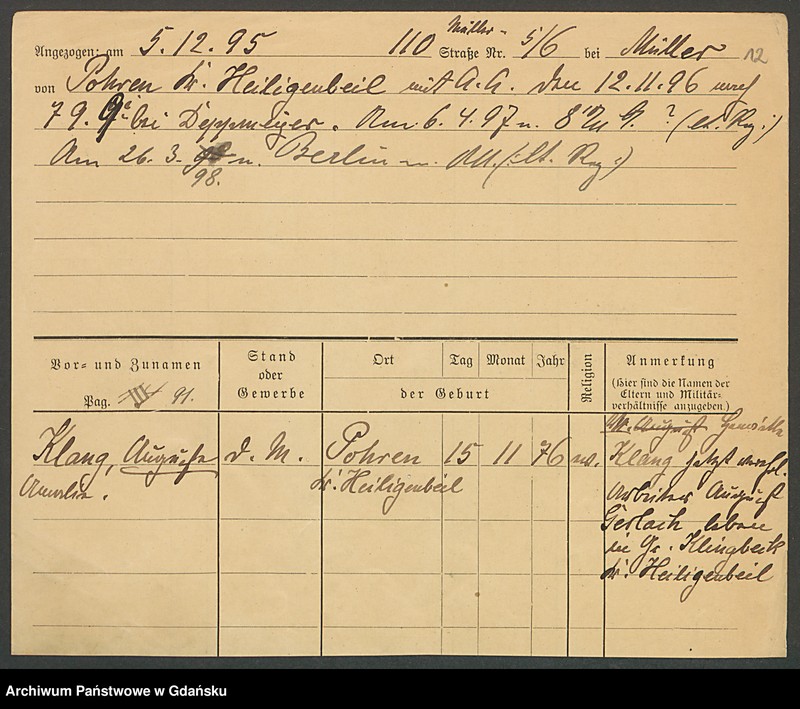 Müller-
Angezogen: am 5.12.95 110 Straße Nr. 5/6 bei Müller 12
von Pohren Kr. Heiligenbeil mit A.A. Den 12.11.96
79. bei Deppmeyer. Am 6.4.97 n. ? (lt. Rg.)
Am 26.3. n. Berlin (lt. Rg.)
98.
Vor- und Zunamen
Pag. III 91.
Stand
oder
Gewerbe
Ort Tag Monat Jahr
der Geburt
Religion
Anmerkung
(Hier sind die Namen der
Eltern und Militär-
verhältnisse anzugeben.)
August
Klang, Auguste d. M. Pohren 15 11 76 ev. Klang jetzt verehl.
Amalie. Kr. Heiligenbeil Arbeiter August
Gerlach leben
in Gr. Klingbeck
Kr. Heiligenbeil
Archiwum Państwowe w Gdańsku